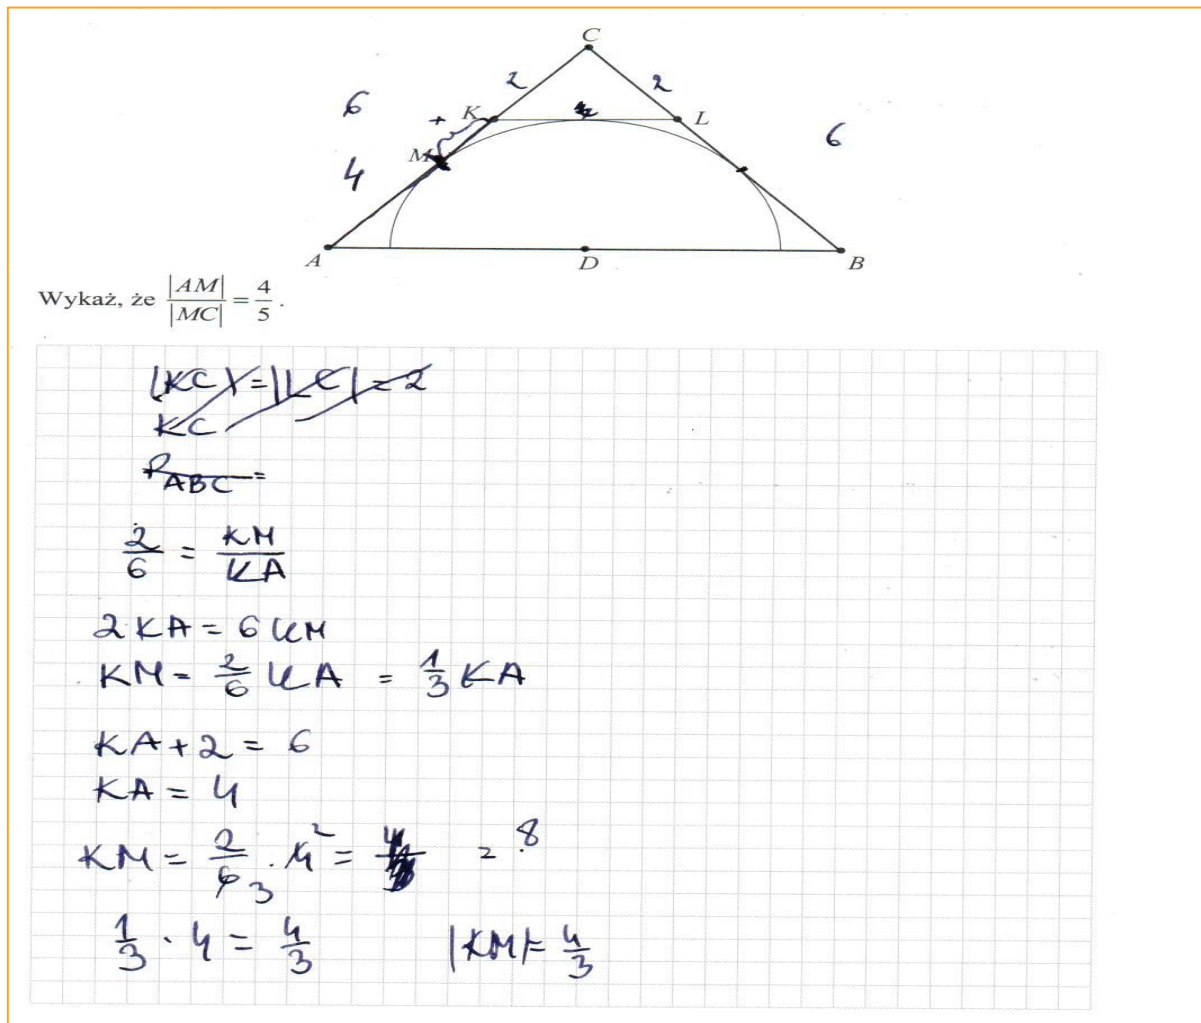 C
2 2
6 K + L 6
M
4
A D B
Wykaż, że |AM|/|MC| = 4/5.
|KC| = |LC| = 2
KC
P_ABC =
2/6 = KM/KA
2KA = 6KM
KM = 2/6 KA = 1/3 KA
KA + 2 = 6
KA = 4
KM = 2/6 3 · 4 2 = 4 = 8
1/3 · 4 = 4/3 |KM| = 4/3